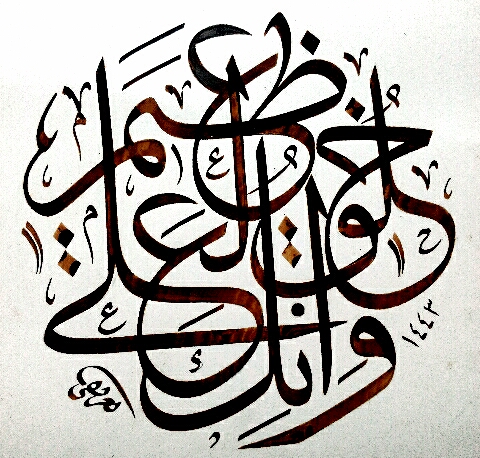 وإنك لعلى خلق عظيم
١٤٤٣